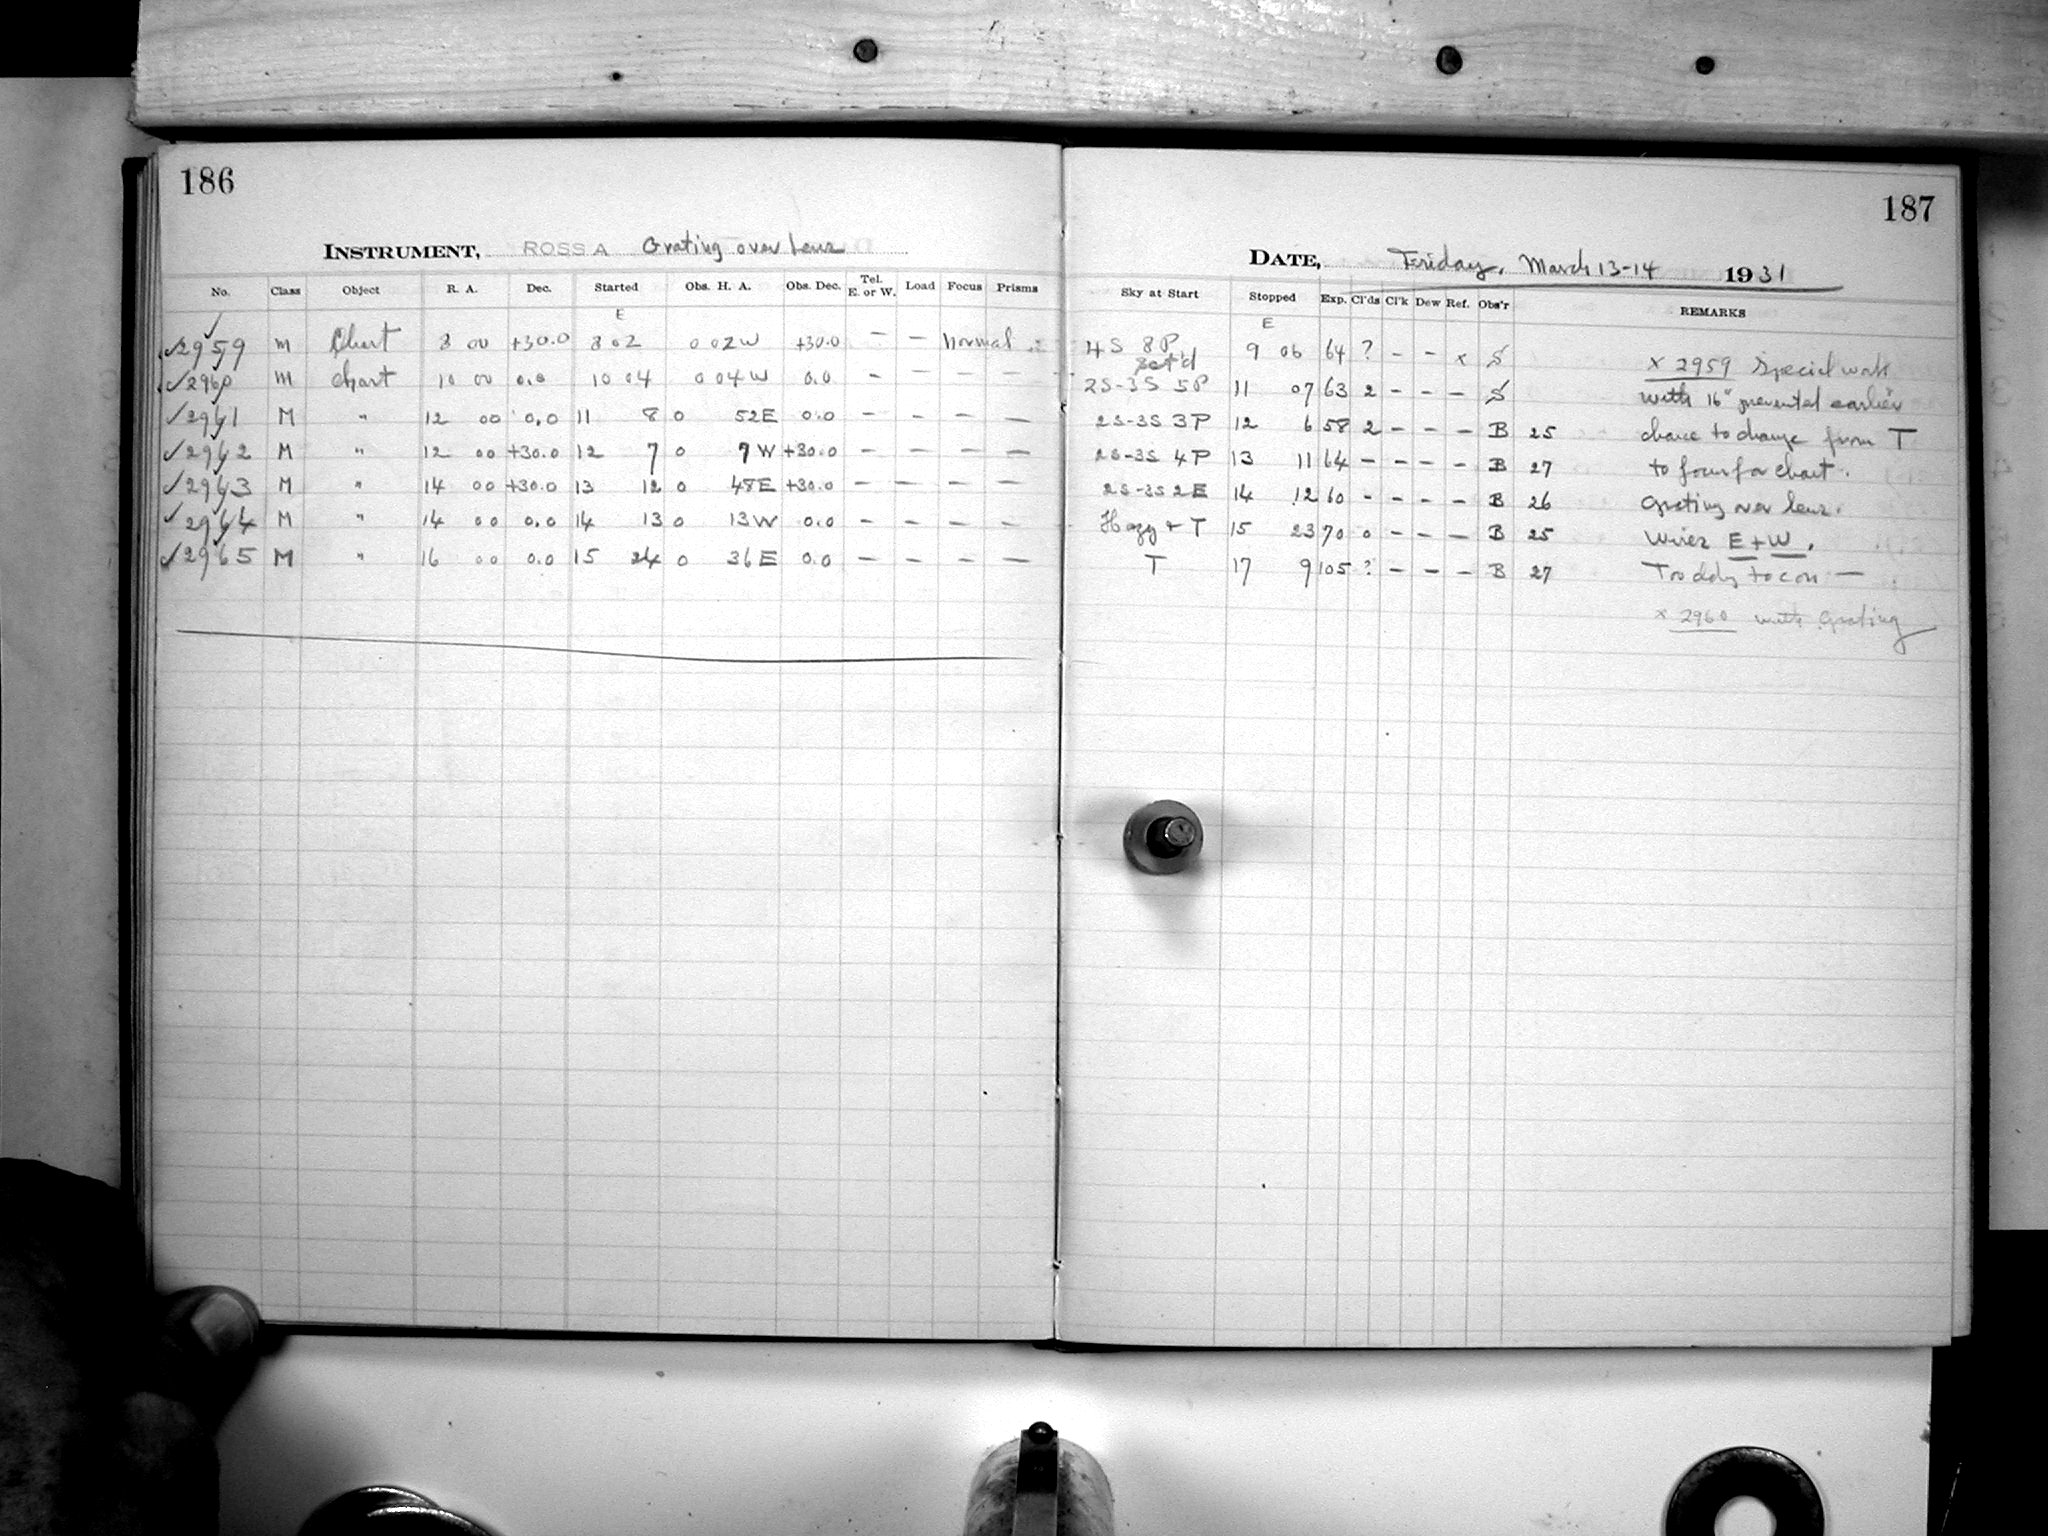 186
INSTRUMENT, ROSS A Grating over Lens
No. Class Object R. A. Dec. Started Obs. H. A. Obs. Dec. Tel. E. or W. Load Focus Prisms
E
✓2959 M Chart 8 00 +30.0 8 02 0 02W +30.0 — — Normal
✓2960 M Chart 10 00 0.0 10 04 0 04W 0.0 — — — —
✓2961 M " 12 00 0.0 11 8 0 52E 0.0 — — — —
✓2962 M " 12 00 +30.0 12 7 0 7W +30.0 — — — —
✓2963 M " 14 00 +30.0 13 12 0 48E +30.0 — — — —
✓2964 M " 14 00 0.0 14 13 0 13W 0.0 — — — —
✓2965 M " 16 00 0.0 15 24 0 36E 0.0 — — — —
187
DATE, Friday, March 13-14 1931
Sky at Start Stopped Exp. Cl'ds Cl'k Dew Ref. Obs'r REMARKS
E
4S 8P sct'd 9 06 64 ? – – x S x 2959 Special work
2S-3S 5P 11 07 63 2 – – – S with 16" prevented earlier
2S-3S 3P 12 6 58 2 – – – B 25 chance to change from T
2S-3S 4P 13 11 64 – – – – B 27 to focus for chart.
2S-3S 2E 14 12 60 – – – – B 26 Grating over lens.
Hazy + T 15 23 70 0 – – – B 25 Wires E + W.
T 17 9 105 ? – – – B 27
x 2960 with Grating